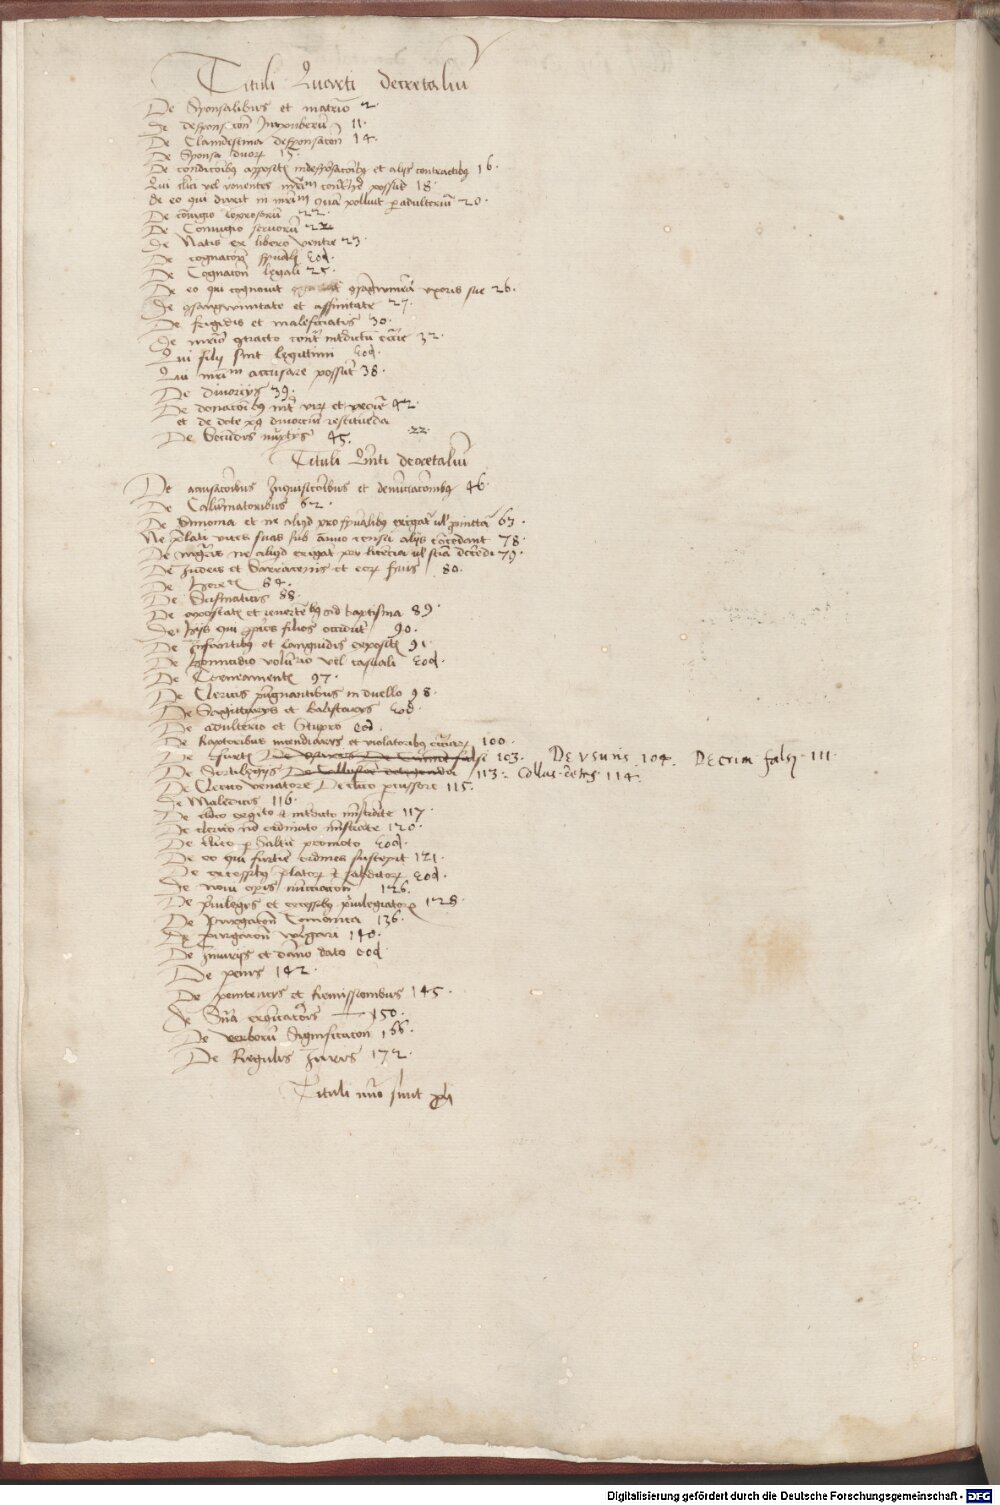 Tituli Quarti decretaliu
De Sponsalibus et matrio 2
de desponsacon Inpuberu 11
De Clandestina desponsacon 14
De Sponsa duorum 15
De condicoibus appositis in desponsacoibus et alijs contractibus 16
Qui clici vel vouentes mrim contrahe possut 18
de eo qui duxit in mrim qua polluit p adulteriu 20
De coniugio leprosoru 22
De Coniugio seruoru 22
de Natis ex libero ventre 23
De cognacon spuali eod
De Cognacon legali 25
De eo qui cognouit consangwinea uxoris sue 26
de consangwinitate et affinitate 27
De frigidis et maleficiatis 30
de mrio contracto contra interdictu eccie 32
Qui filij sint legitimi eod
Qui mrim accusare possut 38
De diuorcijs 39
De donacoibus int viru et vxore 42
et de dote post diuorciu restituenda
De Secundis nuptijs 45
22
Tituli Quinti decretaliu
De accusacoibus Inquisicoibus et denunciacoibus 46
De Calumniatoribus 62
De Simonia et ne aliquid pro spualibus exigat ul promittat 63
Ne prelati vices suas sub annuo censu alijs concedant 78
De magistris ne aliquid exigat pro licencia 79
De Judeis et Sarracenis et eorum suis 80
De Hereticis 84
De Scismaticis 88
De apostatis et reiterantibus baptisma 89
de his qui proprios filios occidut 90
De Infantibus et languidis expositis 91
De Homicidio volutario vel casuali eod
De Torneamentis 97
De Clericis pugnantibus in duello 98
De Sagittarijs et balistarijs eod
De adulterio et Stupro eod
De Raptoribus incendiarijs et violatoribus ecciarum 100
De furtis De Vsuris De Crimine falsi 103. De vsuris 104. De crim falsi 111.
De Sortilegijs De Collusione detegenda 113. Collus detg 114.
De Clerico venatore De clico pcussore 115
de Maledicis 116
De clico excoicato ministrate 117
De clerico no ordinato ministrate 120
De clico p Saltu promoto eod
De eo qui furtiue ordines suscepit 121
De excessibus prelatorum et subditorum eod
de noui operis nunciacon 126
De priuilegijs et excessibus priuilegiatorum 128
De Purgacon Canonica 136
De purgacon vulgari 140
De Iniurijs et damno dato eod
De penis 142
De penitencijs et Remissionibus 145
de Snia excoicacois 150
De verboru significacon 166
De Regulis Juris 172
Tituli sunt
Digitalisierung gefördert durch die Deutsche Forschungsgemeinschaft - DFG